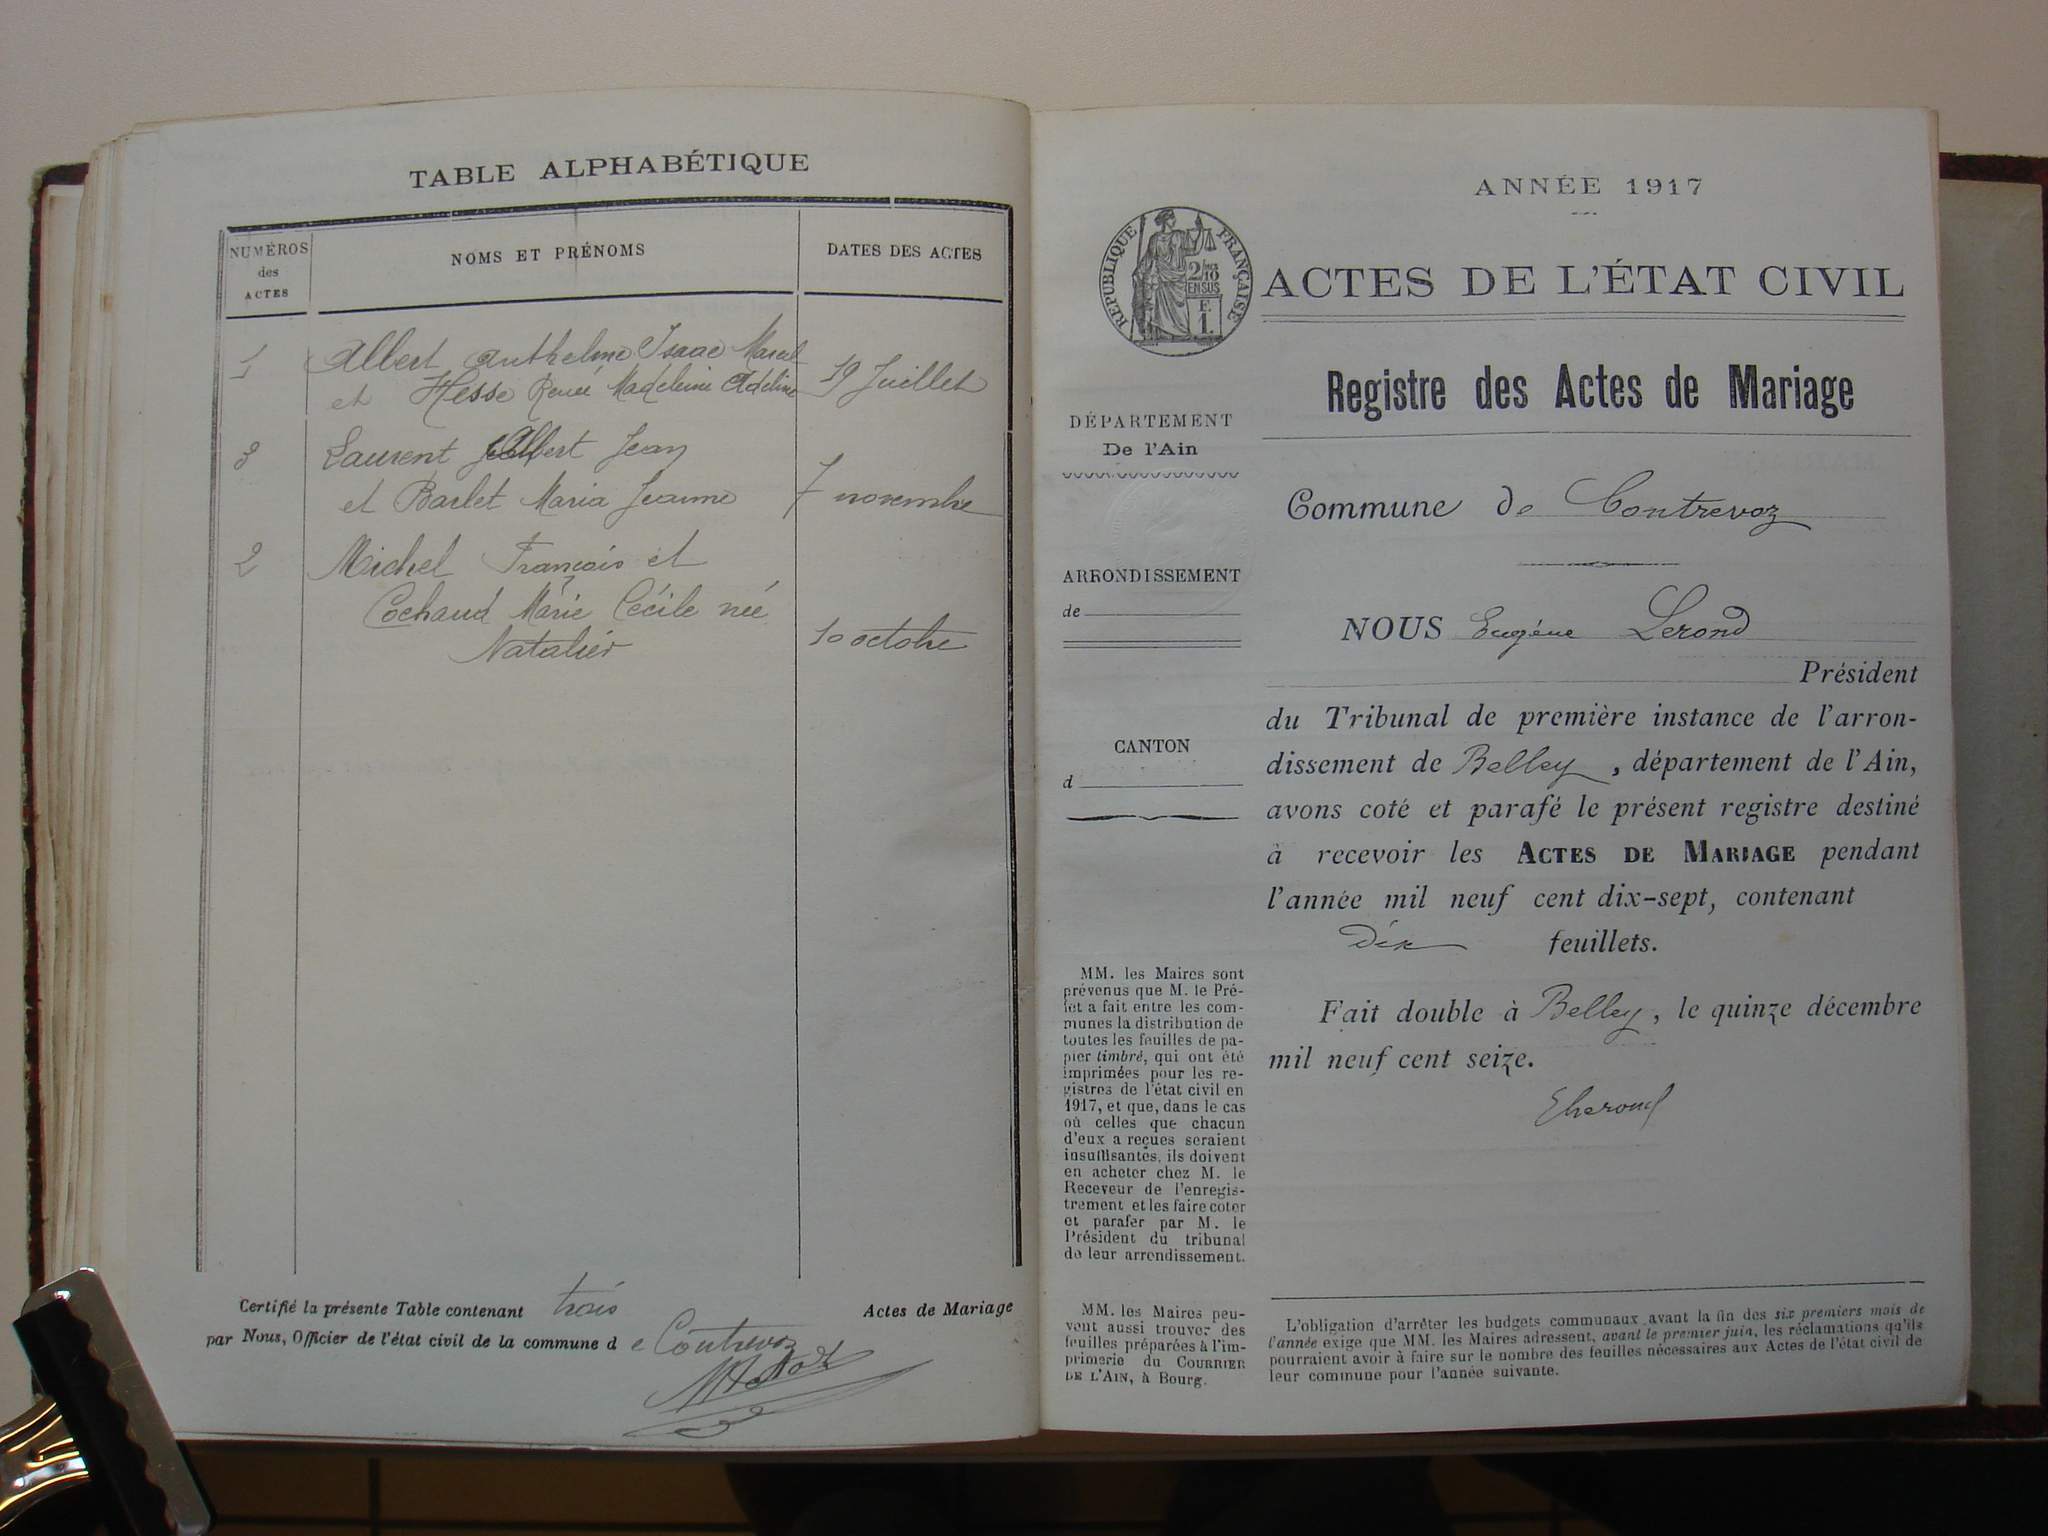 TABLE ALPHABÉTIQUE
NUMÉROS
des
ACTES
NOMS ET PRÉNOMS
DATES DES ACTES
1 Albert Anthelme Isaac Marcel
et Hesse Renée Madeleine Adeline 19 Juillet
3 Laurent Albert Jean
et Barlet Maria Jeanne 7 novembre
2 Michel François et
Cochaud Marie Cécile née
Natalier 10 octobre
Certifié la présente Table contenant trois Actes de Mariage
par Nous, Officier de l'état civil de la commune d e Contrevoz
ANNÉE 1917
RÉPUBLIQUE FRANÇAISE
2/10
EN SUS
F.
1.
ACTES DE L'ÉTAT CIVIL
Registre des Actes de Mariage
DÉPARTEMENT
De l'Ain
ARRONDISSEMENT
de
CANTON
d
MM. les Maires sont
prévenus que M. le Pré-
fet a fait entre les com-
munes la distribution de
toutes les feuilles de pa-
pier timbré, qui ont été
imprimées pour les re-
gistres de l'état civil en
1917, et que, dans le cas
où celles que chacun
d'eux a reçues seraient
insuffisantes, ils doivent
en acheter chez M. le
Receveur de l'enregis-
trement et les faire coter
et parafer par M. le
Président du tribunal
de leur arrondissement.
MM. les Maires peu-
vent aussi trouver des
feuilles préparées à l'im-
primerie du COURRIER
DE L'AIN, à Bourg.
Commune de Contrevoz
NOUS Eugène Lerond
Président
du Tribunal de première instance de l'arron-
dissement de Belley, département de l'Ain,
avons coté et parafé le présent registre destiné
à recevoir les ACTES DE MARIAGE pendant
l'année mil neuf cent dix-sept, contenant
dix feuillets.
Fait double à Belley, le quinze décembre
mil neuf cent seize.
L'obligation d'arrêter les budgets communaux avant la fin des six premiers mois de
l'année exige que MM. les Maires adressent, avant le premier juin, les réclamations qu'ils
pourraient avoir à faire sur le nombre des feuilles nécessaires aux Actes de l'état civil de
leur commune pour l'année suivante.